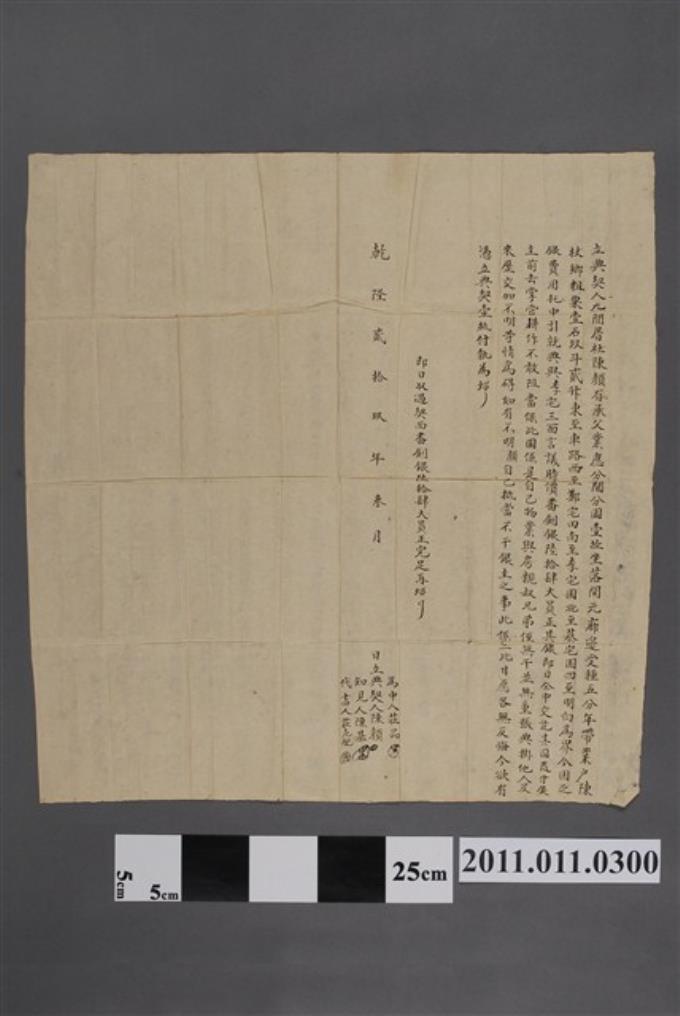 立典契人九間厝社陳願有承父業應分鬮分園壹坵坐落開元廍邊受種五分年帶業戶陳
枋鄉租粟壹石玖斗貳升東至車路西至鄭宅田南至李宅園北至蔡宅園四至明白為界今因乏
銀費用托中引就典與李宅三面言議時價番劍銀陸拾肆大員正其銀即日仝中交訖其園隨付銀
主前去掌管耕作不敢阻當保此園係是自己物業與房親叔兄弟侄無干並無重張典掛他人及
來歷交加不明等情為碍如有不明願自己抵當不干銀主之事此係二比甘愿各無反悔今欲有
憑立典契壹紙付執為炤
即日收過契面番劍銀陸拾肆大員正完足再炤
乾隆貳拾玖年叁月
為中人莊品
日立典契人陳願
知見人陳基
代書人莊
5cm
5cm
25cm
2011.011.0300